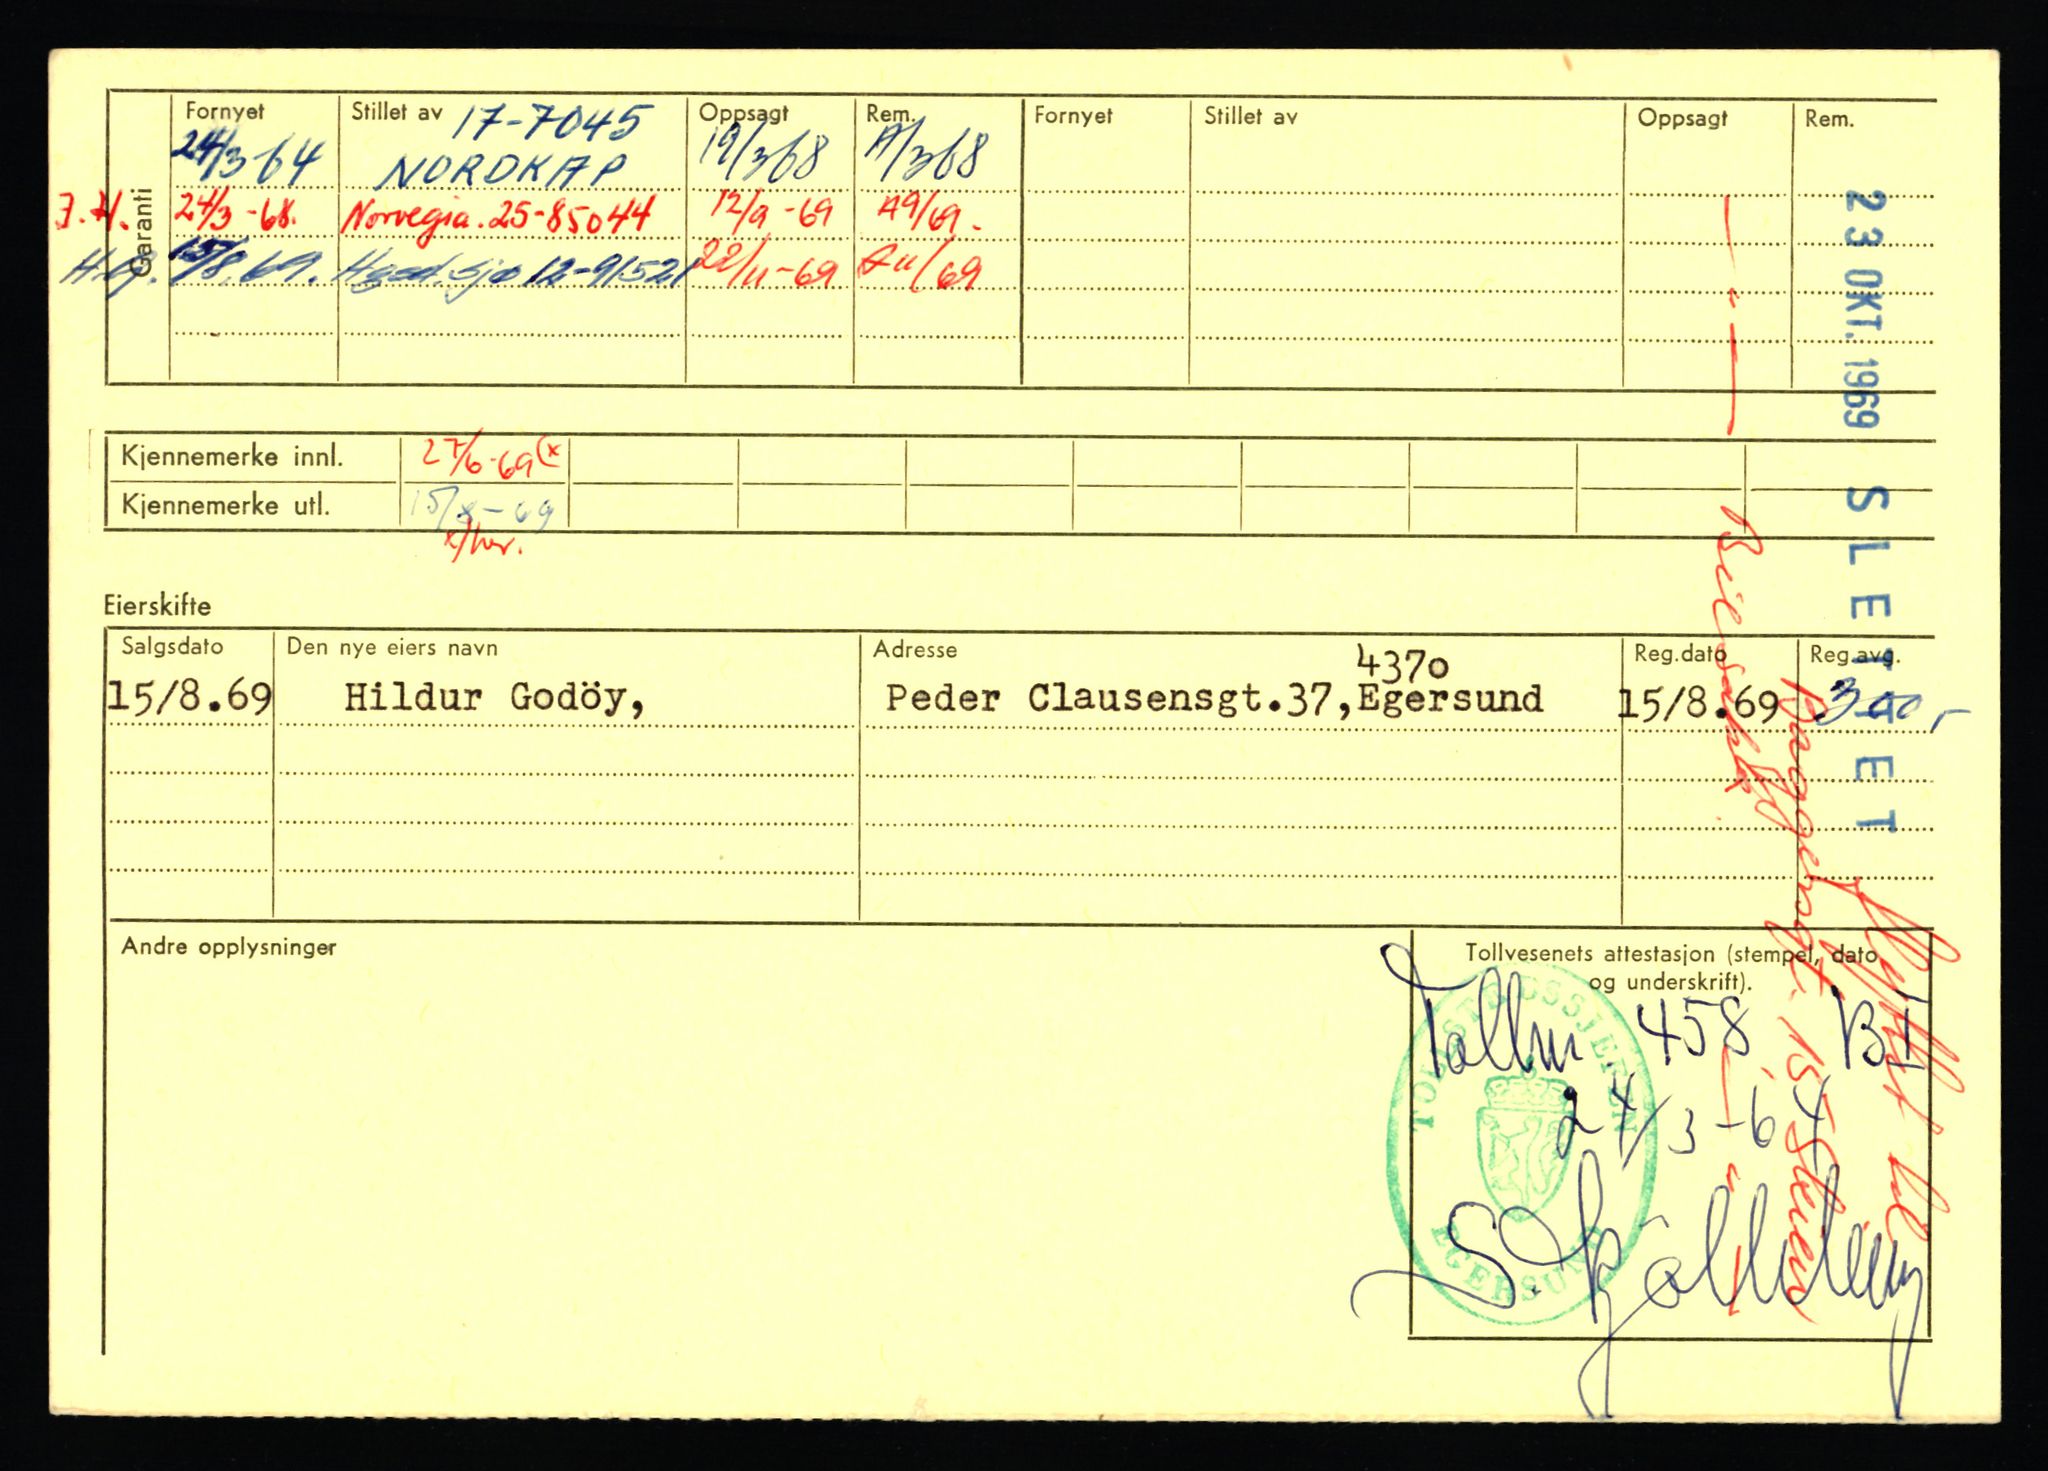 Fornyet Stillet av 17-7045 Oppsagt Rem. Fornyet Stillet av Oppsagt Rem.
24/3-64 NORDKAP 19/3 68 A/3 68
J.H. 24/3-68. Norvegia. 25-85044 12/9-69 A9/69.
15/8.69. 12-91521 22/11-69 A11/69
Garanti
Kjennemerke innl. 27/6-69 (x
Kjennemerke utl. 15/8-69
Eierskifte
Salgsdato Den nye eiers navn Adresse Reg.dato Reg.avg.
4370
15/8.69 Hildur Godöy, Peder Clausensgt.37,Egersund 15/8.69 300,-
Andre opplysninger
Tollvesenets attestasjon (stempel, dato
og underskrift).
Tollnr. 458 BI
24/3-64
TOLLSTEDSSJEFEN
EGERSUND
23 OKT. 1969 SLETTET
Flyttet til
15 Skien